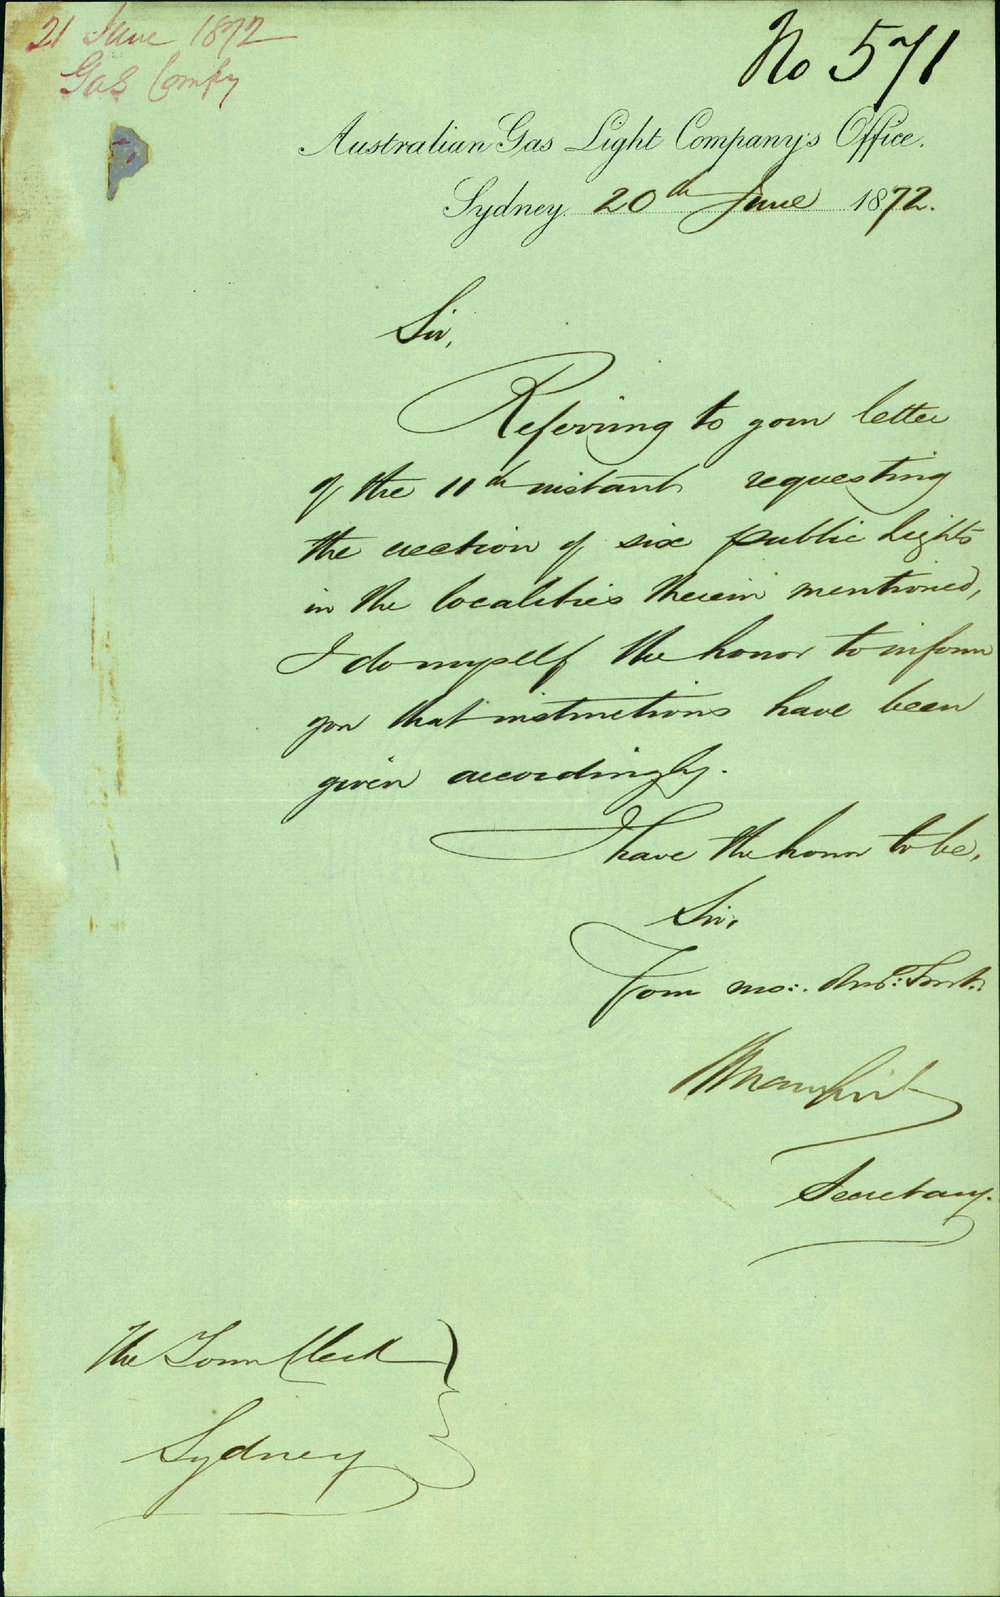 21 June 1872
Gas Compy
No 571
Australian Gas Light Company's Office.
Sydney. 20th June 1872.
Sir,
Referring to your letter
of the 11th instant requesting
the erection of six public lights
in the localities therein mentioned,
I do myself the honor to inform
you that instructions have been
given accordingly.
I have the honor to be,
Sir,
Your mo:. Obt: Servt:
Secretary.
The Town Clerk
Sydney